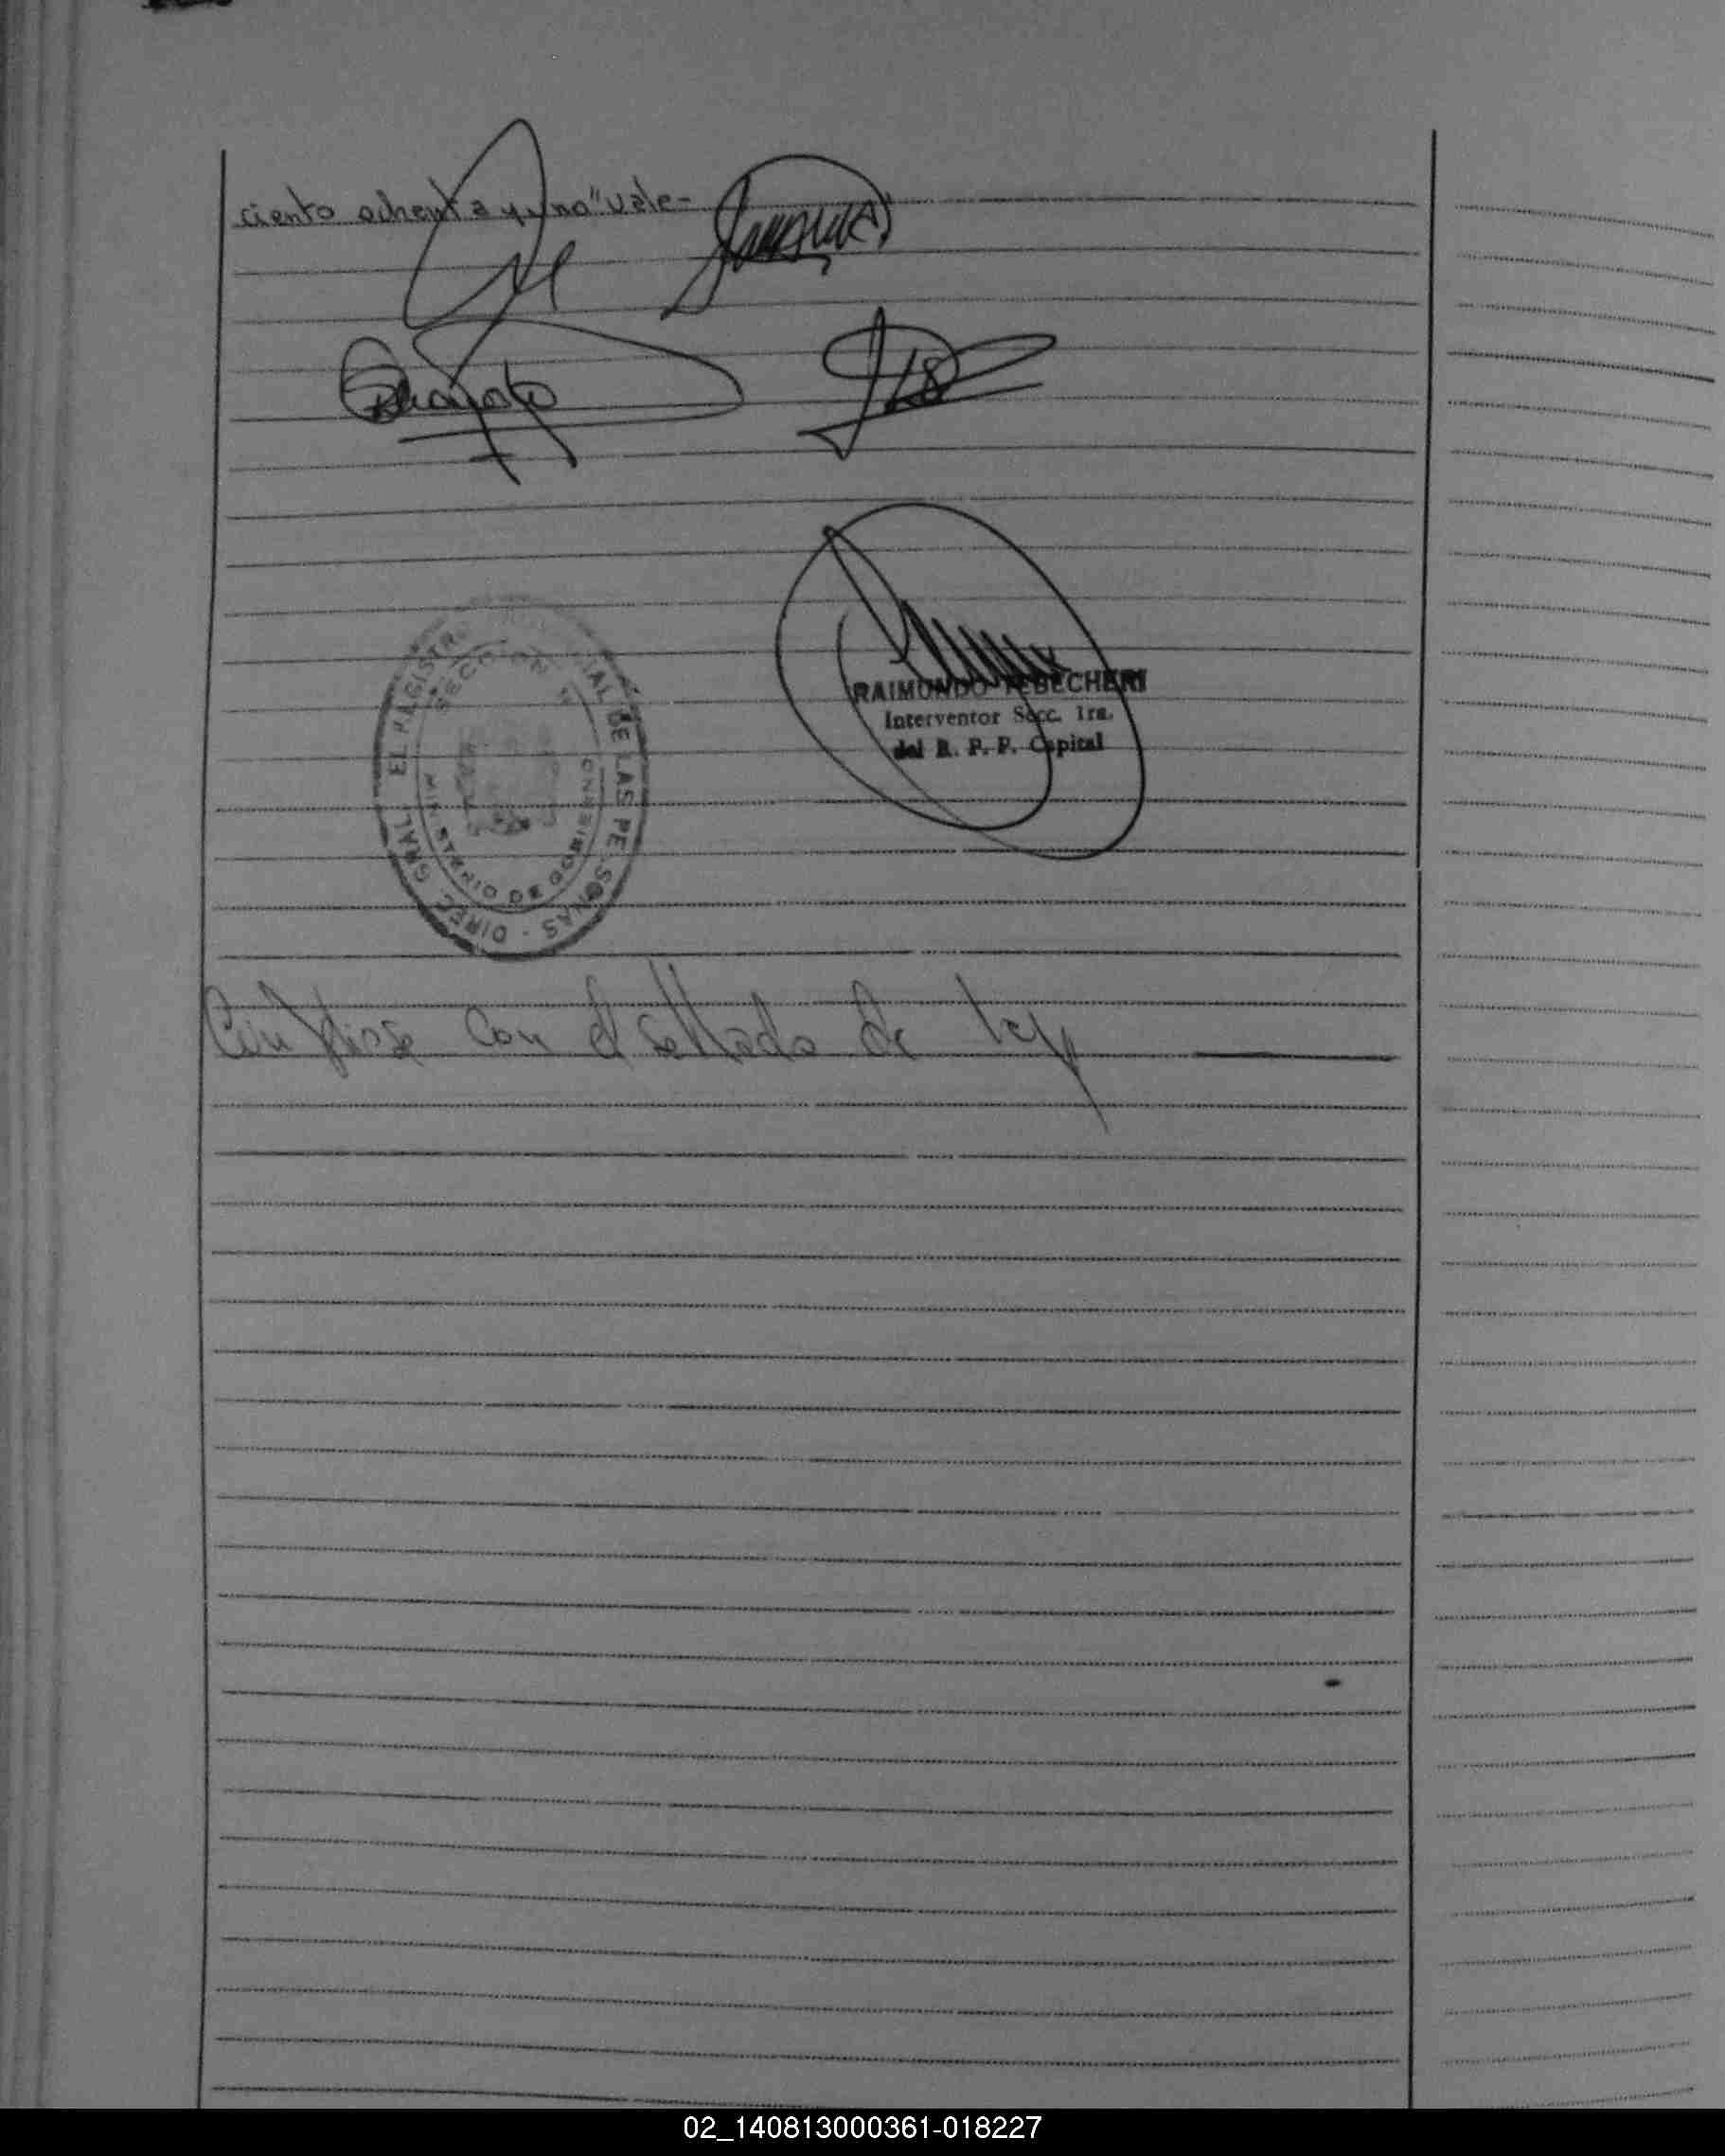 ciento ochenta y uno" vale-
RAIMUNDO TEBECHERI
Interventor Secc. 1ra.
del R. P. P. Capital
DIREC. GRAL. EL REGISTRO PROVINCIAL DE LAS PERSONAS -
SECCION
MINISTERIO DE GOBIERNO
con el sellado de ley
02_140813000361-018227